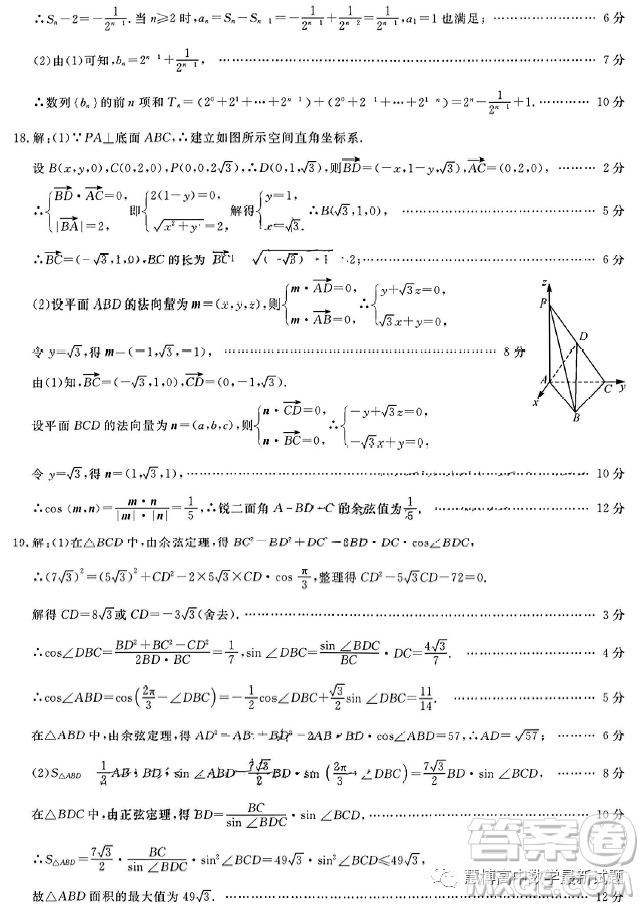 ∴Sₙ-2=-1/2ⁿ⁻¹.当n≥2时,aₙ=Sₙ-Sₙ₋₁=-1/2ⁿ⁻¹+1/2ⁿ⁻²=1/2ⁿ⁻¹,a₁=1也满足; …… 6分
(2)由(1)可知,bₙ=2ⁿ⁻¹+1/2ⁿ⁻¹, …… 7分
∴数列{bₙ}的前n项和Tₙ=(2⁰+2¹+…+2ⁿ⁻¹)+(1/2⁰+1/2¹+…+1/2ⁿ⁻¹)=2ⁿ-1/2ⁿ⁻¹+1. …… 10分
18.解:(1)∵PA⊥底面ABC,∴建立如图所示空间直角坐标系.
设B(x,y,0),C(0,2,0),P(0,0,2√3),∴D(0,1,√3),则BD=(-x,1-y,√3),AC=(0,2,0), …… 2分
∴{BD·AC=0, |BA|=2, 即{2(1-y)=0, √(x²+y²)=2, 解得{y=1, x=√3. ∴B(√3,1,0), …… 5分
∴BC=(-√3,1,0).BC的长为|BC|=√((-√3)²+1²)=2; …… 6分
(2)设平面ABD的法向量为m=(x,y,z),则{m·AD=0, m·AB=0, ∴{y+√3z=0, √3x+y=0.
令y=√3,得m=(-1,√3,-1), …… 8分
由(1)知,BC=(-√3,1,0),CD=(0,-1,√3).
设平面BCD的法向量为n=(a,b,c),则{n·CD=0, n·BC=0, ∴{-y+√3z=0, -√3x+y=0.
令y=√3,得n=(1,√3,1), …… 10分
∴cos⟨m,n⟩=m·n/(|m|·|n|)=1/5,∴锐二面角A-BD-C的余弦值为1/5. …… 12分
z P D A C y x B
19.解:(1)在△BCD中,由余弦定理,得BC²=BD²+DC²-2BD·DC·cos∠BDC,
∴(7√3)²=(5√3)²+CD²-2×5√3×CD·cos π/3,整理得CD²-5√3CD-72=0.
解得CD=8√3或CD=-3√3(舍去). …… 3分
∴cos∠DBC=(BD²+BC²-CD²)/(2BD·BC)=1/7,sin∠DBC=sin∠BDC/BC·DC=4√3/7. …… 4分
∴cos∠ABD=cos(2π/3-∠DBC)=-1/2cos∠DBC+√3/2sin∠DBC=11/14. …… 6分
在△ABD中,由余弦定理,得AD²=AB²+BD²-2AB·BD·cos∠ABD=57,∴AD=√57; …… 6分
(2)S△ABD=1/2AB·BD·sin∠ABD=7√3/2BD·sin(2π/3-∠DBC)=7√3/2BD·sin∠BCD, …… 8分
在△BDC中,由正弦定理,得BD=BC/sin∠BDC·sin∠BCD. …… 10分
∴S△ABD=7√3/2·BC/sin∠BDC·sin²∠BCD=49√3·sin²∠BCD≤49√3,
故△ABD面积的最大值为49√3. …… 12分
答案卷
慧博高中数学最新试题